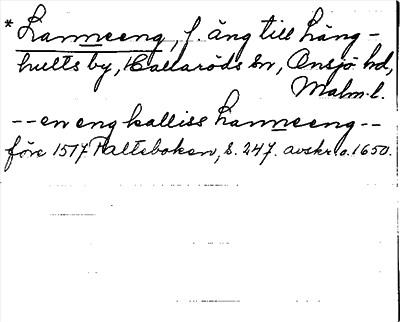 * Lanneeng, f. äng till Lång-
hults by, Hallaröds sn, Onsjö hd,
Malm. l.
-- en eng kalliss Lanneeng --
före 1517 Paltebokan, s. 247. avskr. o. 1650.